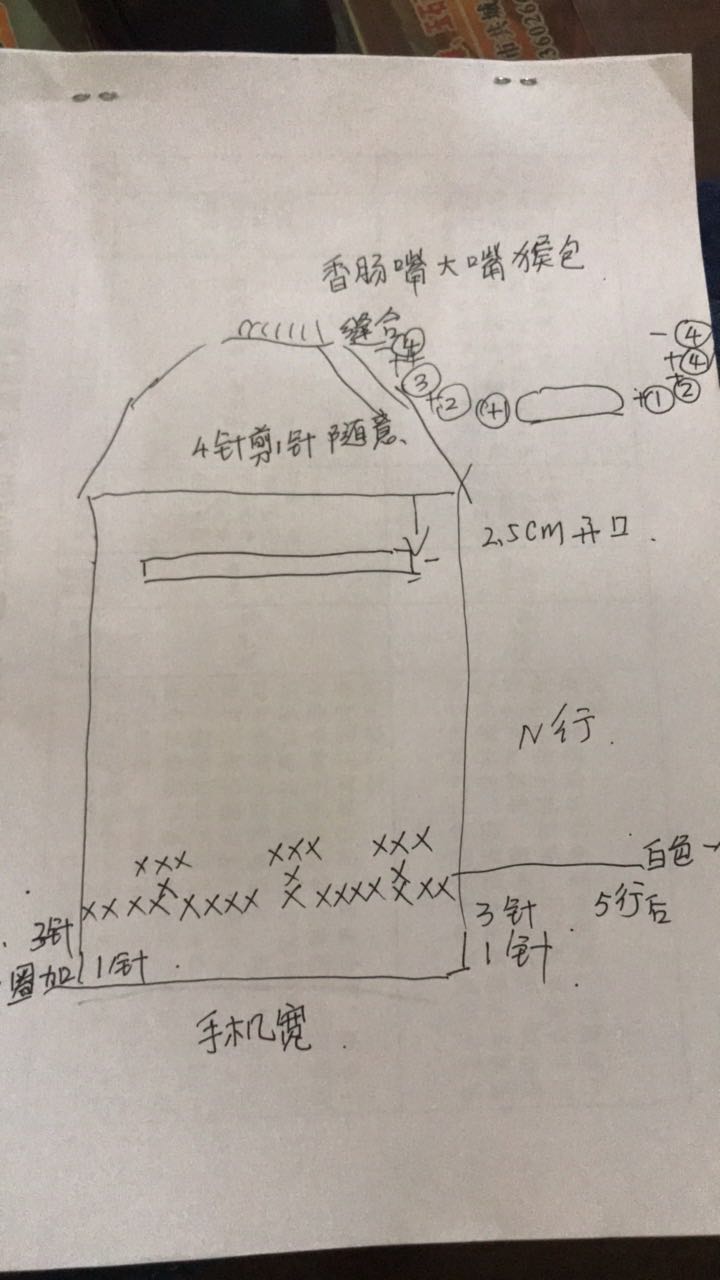 香肠嘴大嘴猴包
缝合
4针剪1针随意、
-④
+④
+②
+①
③
+②
2.5cm开口.
N行.
白色
5行后
XXX XXX XXX
X X X
XX XX XXXX X XXXX X XX
3针
圈加
1针.
3针
1针
手机宽.